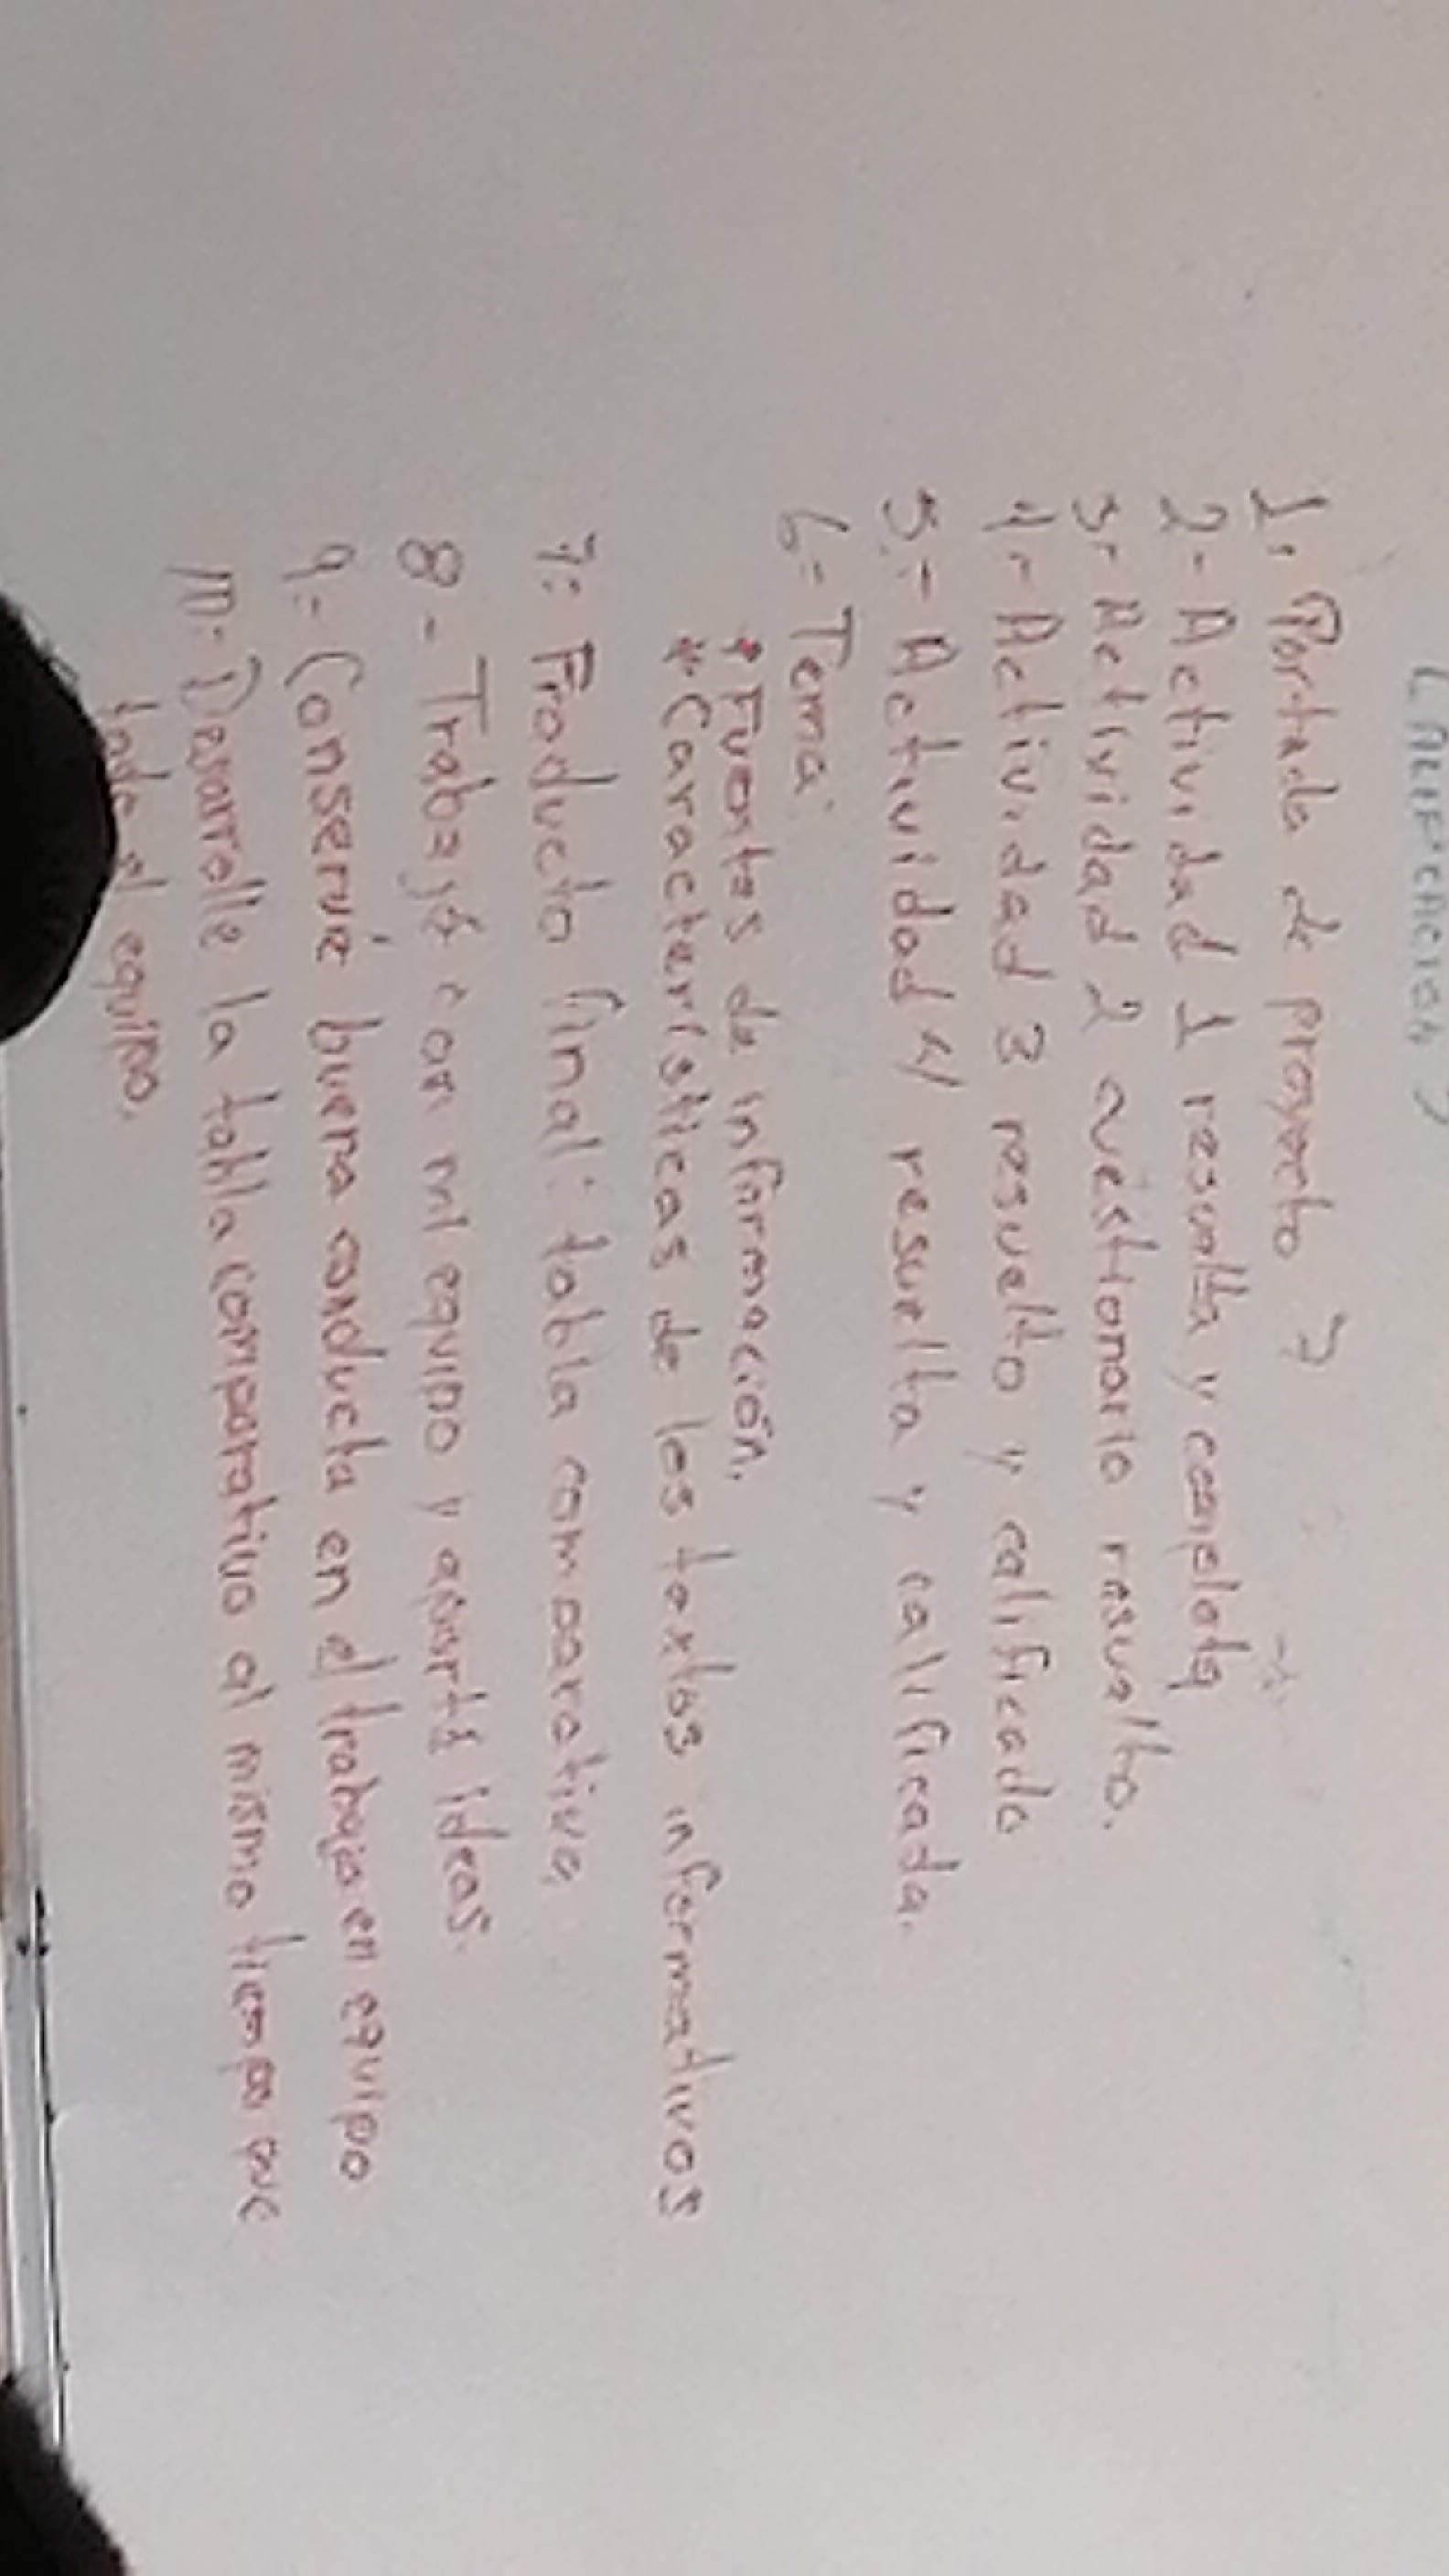 1. Portada de proyecto 3
2- Actividad 1 resuelta y completa
3- Actividad 2 cuestionario resuelto.
4- Actividad 3 resuelto y calificado
5.- Actividad 4 resuelta y calificada.
6- Tema:
* Fuentes de información.
* Características de los textos informativos
7: Producto final: tabla comparativa
8- Trabajé con mi equipo y aporté ideas.
9.- Conservé buena conducta en el trabajo en equipo
10- Desarrolle la tabla comparativo al mismo tiempo que
todo el equipo.